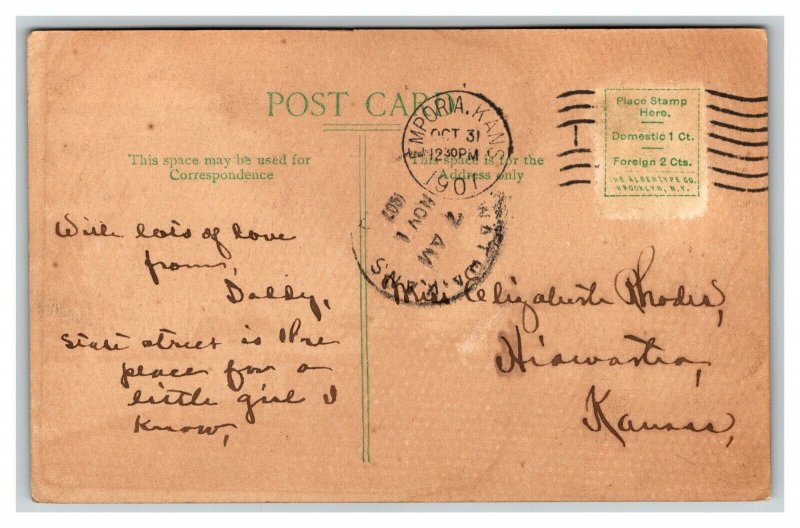 POST CARD
This space may be used for
Correspondence
This space is for the
Address only
EMPORIA, KANS.
OCT 31
1230PM
1907
Place Stamp
Here.
Domestic 1 Ct.
Foreign 2 Cts.
THE ALBERTYPE CO.
BROOKLYN, N.Y.
7 AM
NOV 1
1907
KANS.
With lots of love
from,
Daddy,
State street is the
place for a
little girl I
know,
Miss Elizabeth Rhodes,
Hiawatha,
Kansas,